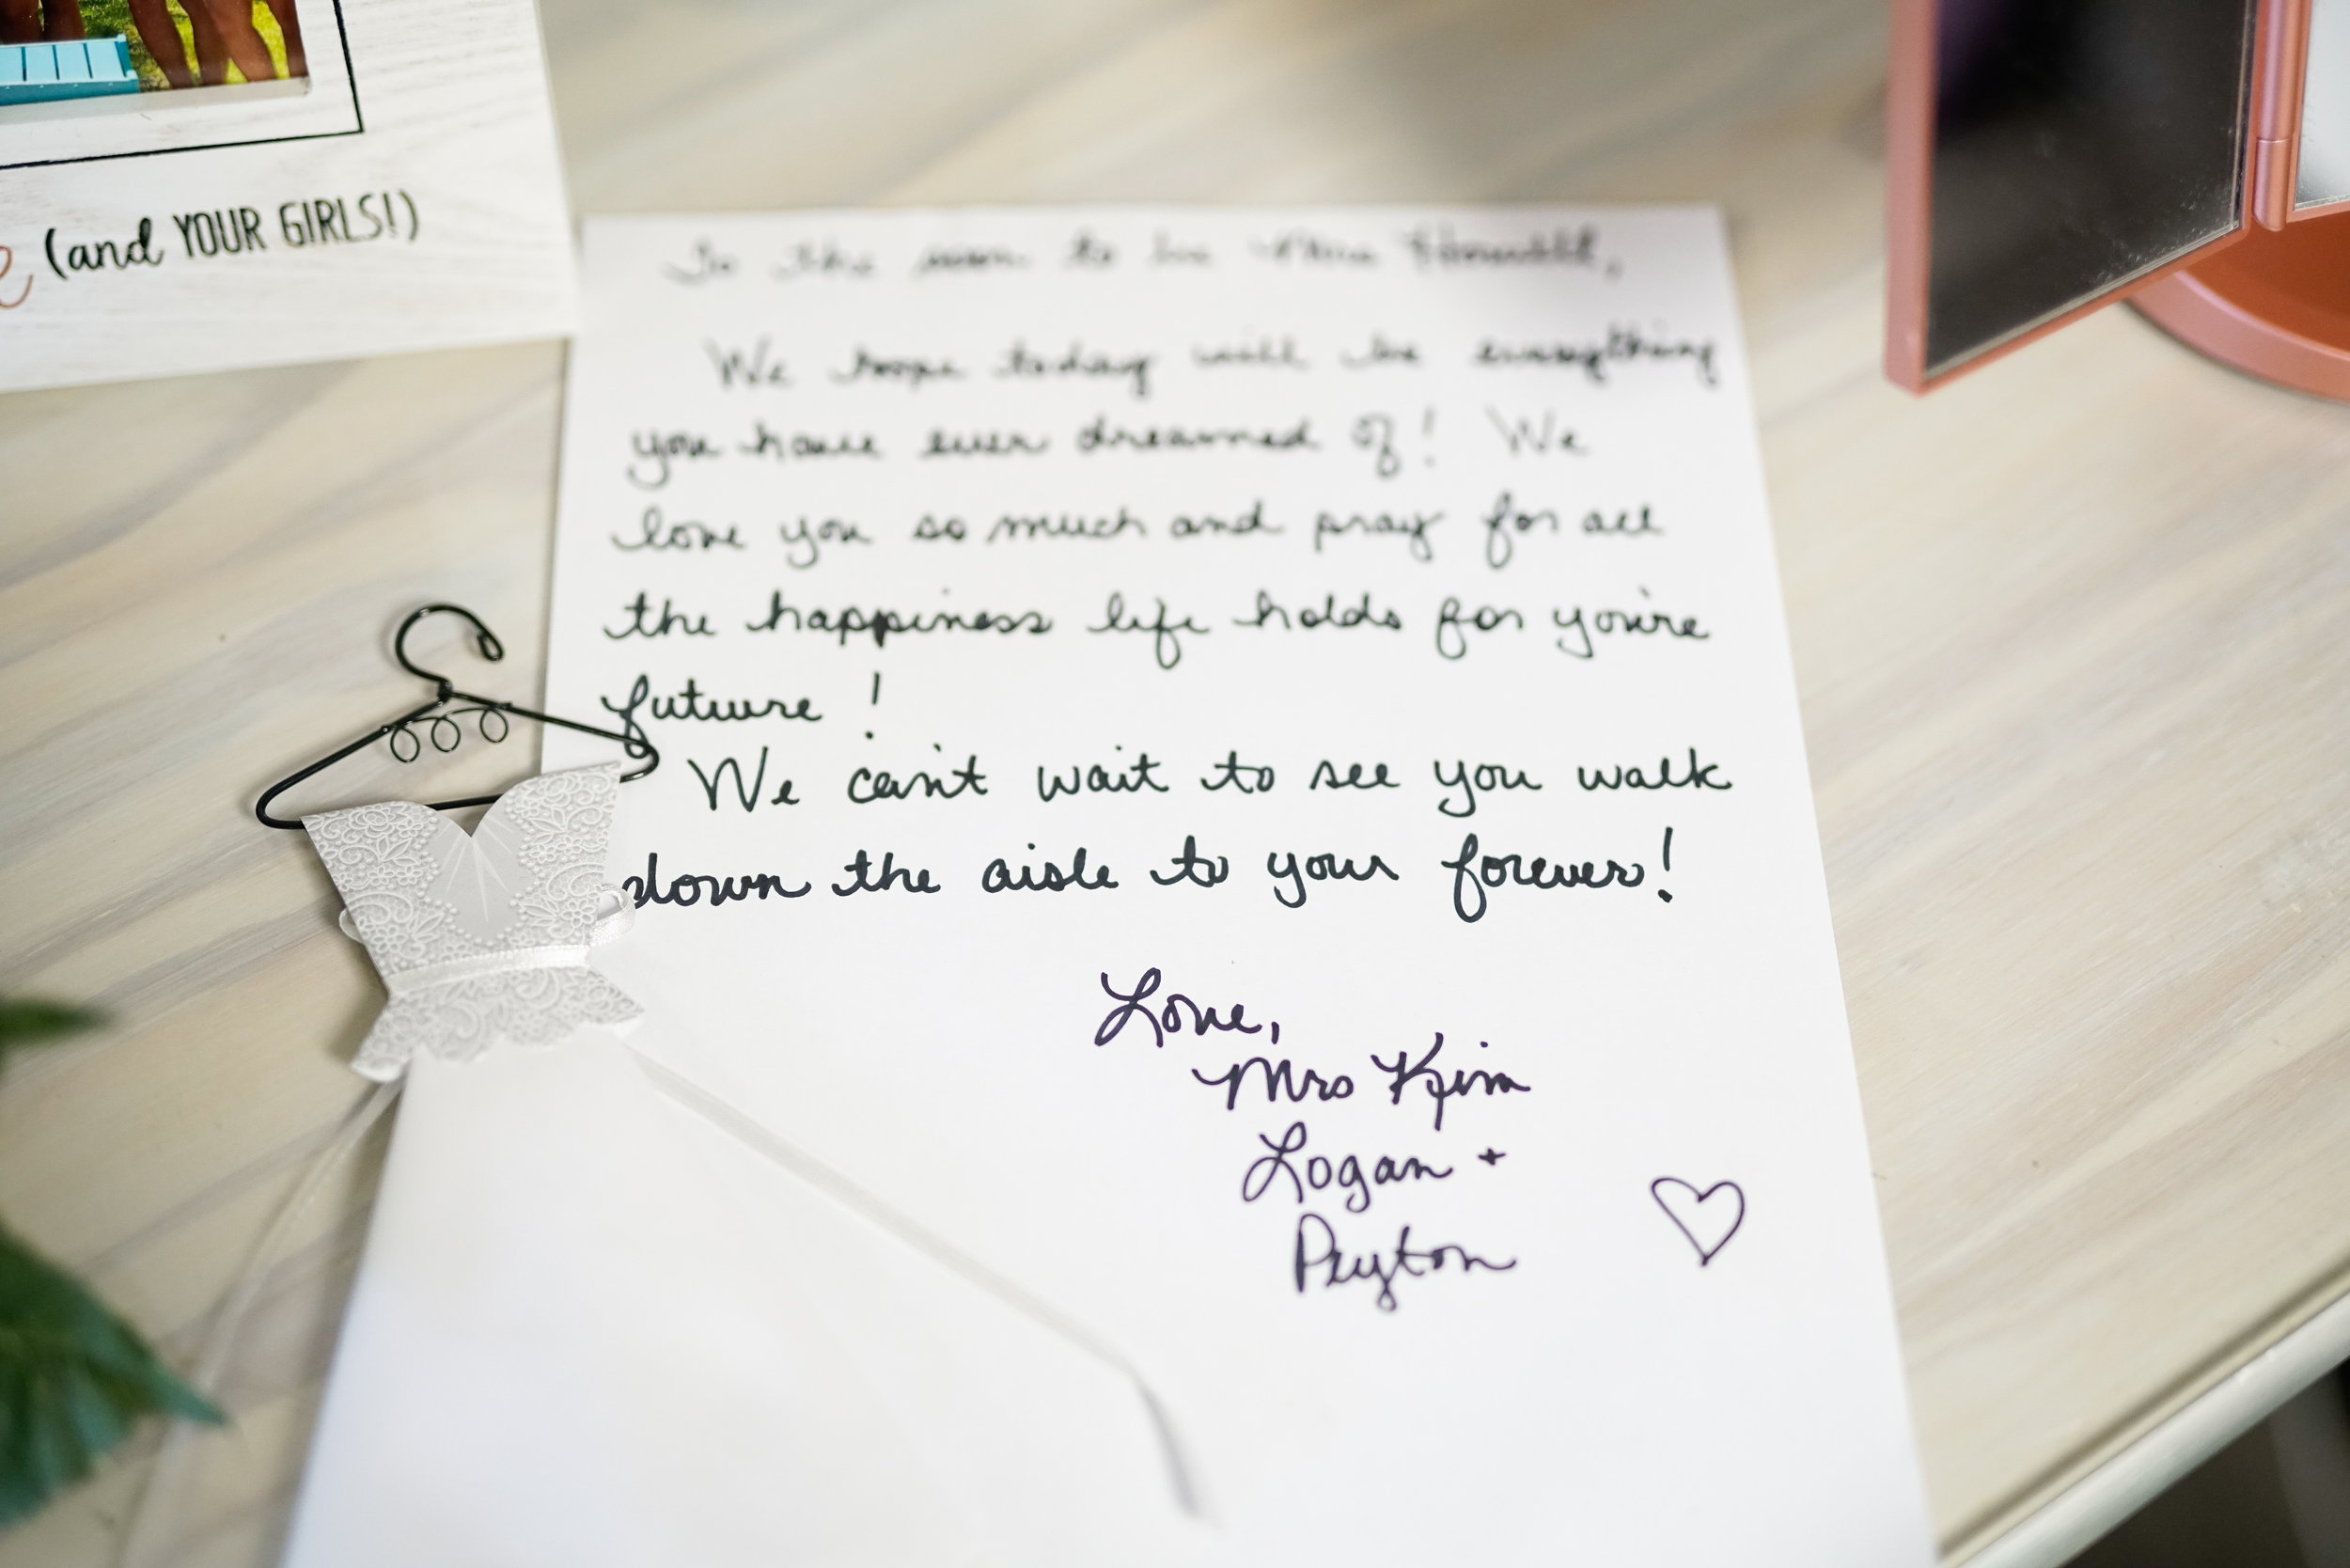 (and YOUR GIRLS!)
To the soon to be Mrs
We hope today will be everything
you have ever dreamed of! We
love you so much and pray for all
the happiness life holds for you're
future !
We can't wait to see you walk
down the aisle to your forever!
Love,
Mrs Kim
Logan +
Peyton